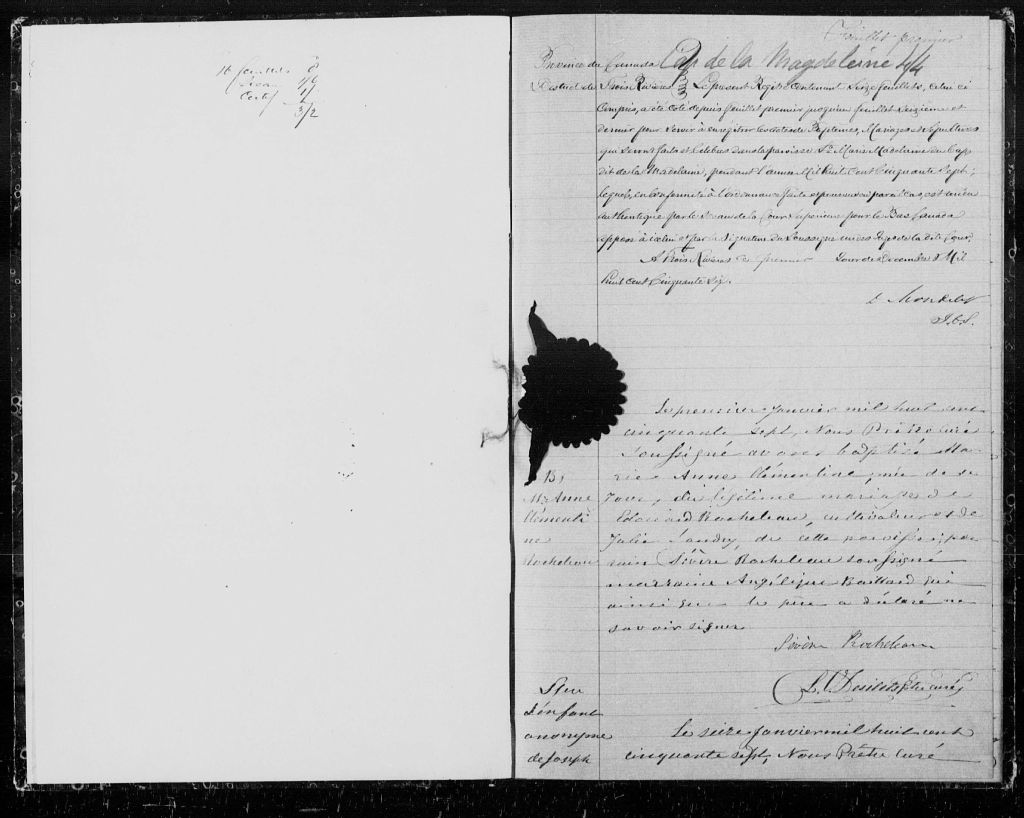 16 feuillets 8
1/6
1/
3/2
Feuillet premier
Province du Canada Cap de la Magdeleine
District de Trois Rivières Le présent Registre contenant Seize feuillets, celui ci
Compris, a été Coté depuis feuillet premier jusqu'au feuillet Seizième et
dernier pour Servir à enregistrer les actes de Baptêmes, Mariages et Sépultures
qui Seront faits et Célébrés dans la paroisse Ste Marie Madeleine du Cap
dit de la Madeleine, pendant l'année Mil huit Cent Cinquante Sept;
lequel, en Conformité à l'ordonnance faite et pourvue en pareil Cas, est rendu
authentique par le Sceau de la Cour Supérieure pour le Bas Canada
apposé à icelui et par la Signature du Soussigné un des Juges de la dite Cour,
A Trois Rivières ce premier Jour de Décembre Mil
huit Cent Cinquante Six.
D Mondelet
J.C.S.
Le premier Janvier mil huit cent
cinquante sept, Nous Prêtre curé
Soussigné avons baptisé Ma-
B1 rie Anne Clémentine, née de ce
Me Anne Jour, du légitime mariage de
Clémenti Edouard Rocheleau, cultivateur et de
ne Julie Landry, de cette paroisse; par-
Rocheleau rain Sévère Rocheleau soussigné
marraine Angélique qui
ainsi que le père a déclaré ne
savoir signer
Sévère Rocheleau
Ptre curé
Sépu
d'enfant
anonyme Le seize Janvier mil huit cent
de Joseph cinquante sept, Nous Prêtre Curé